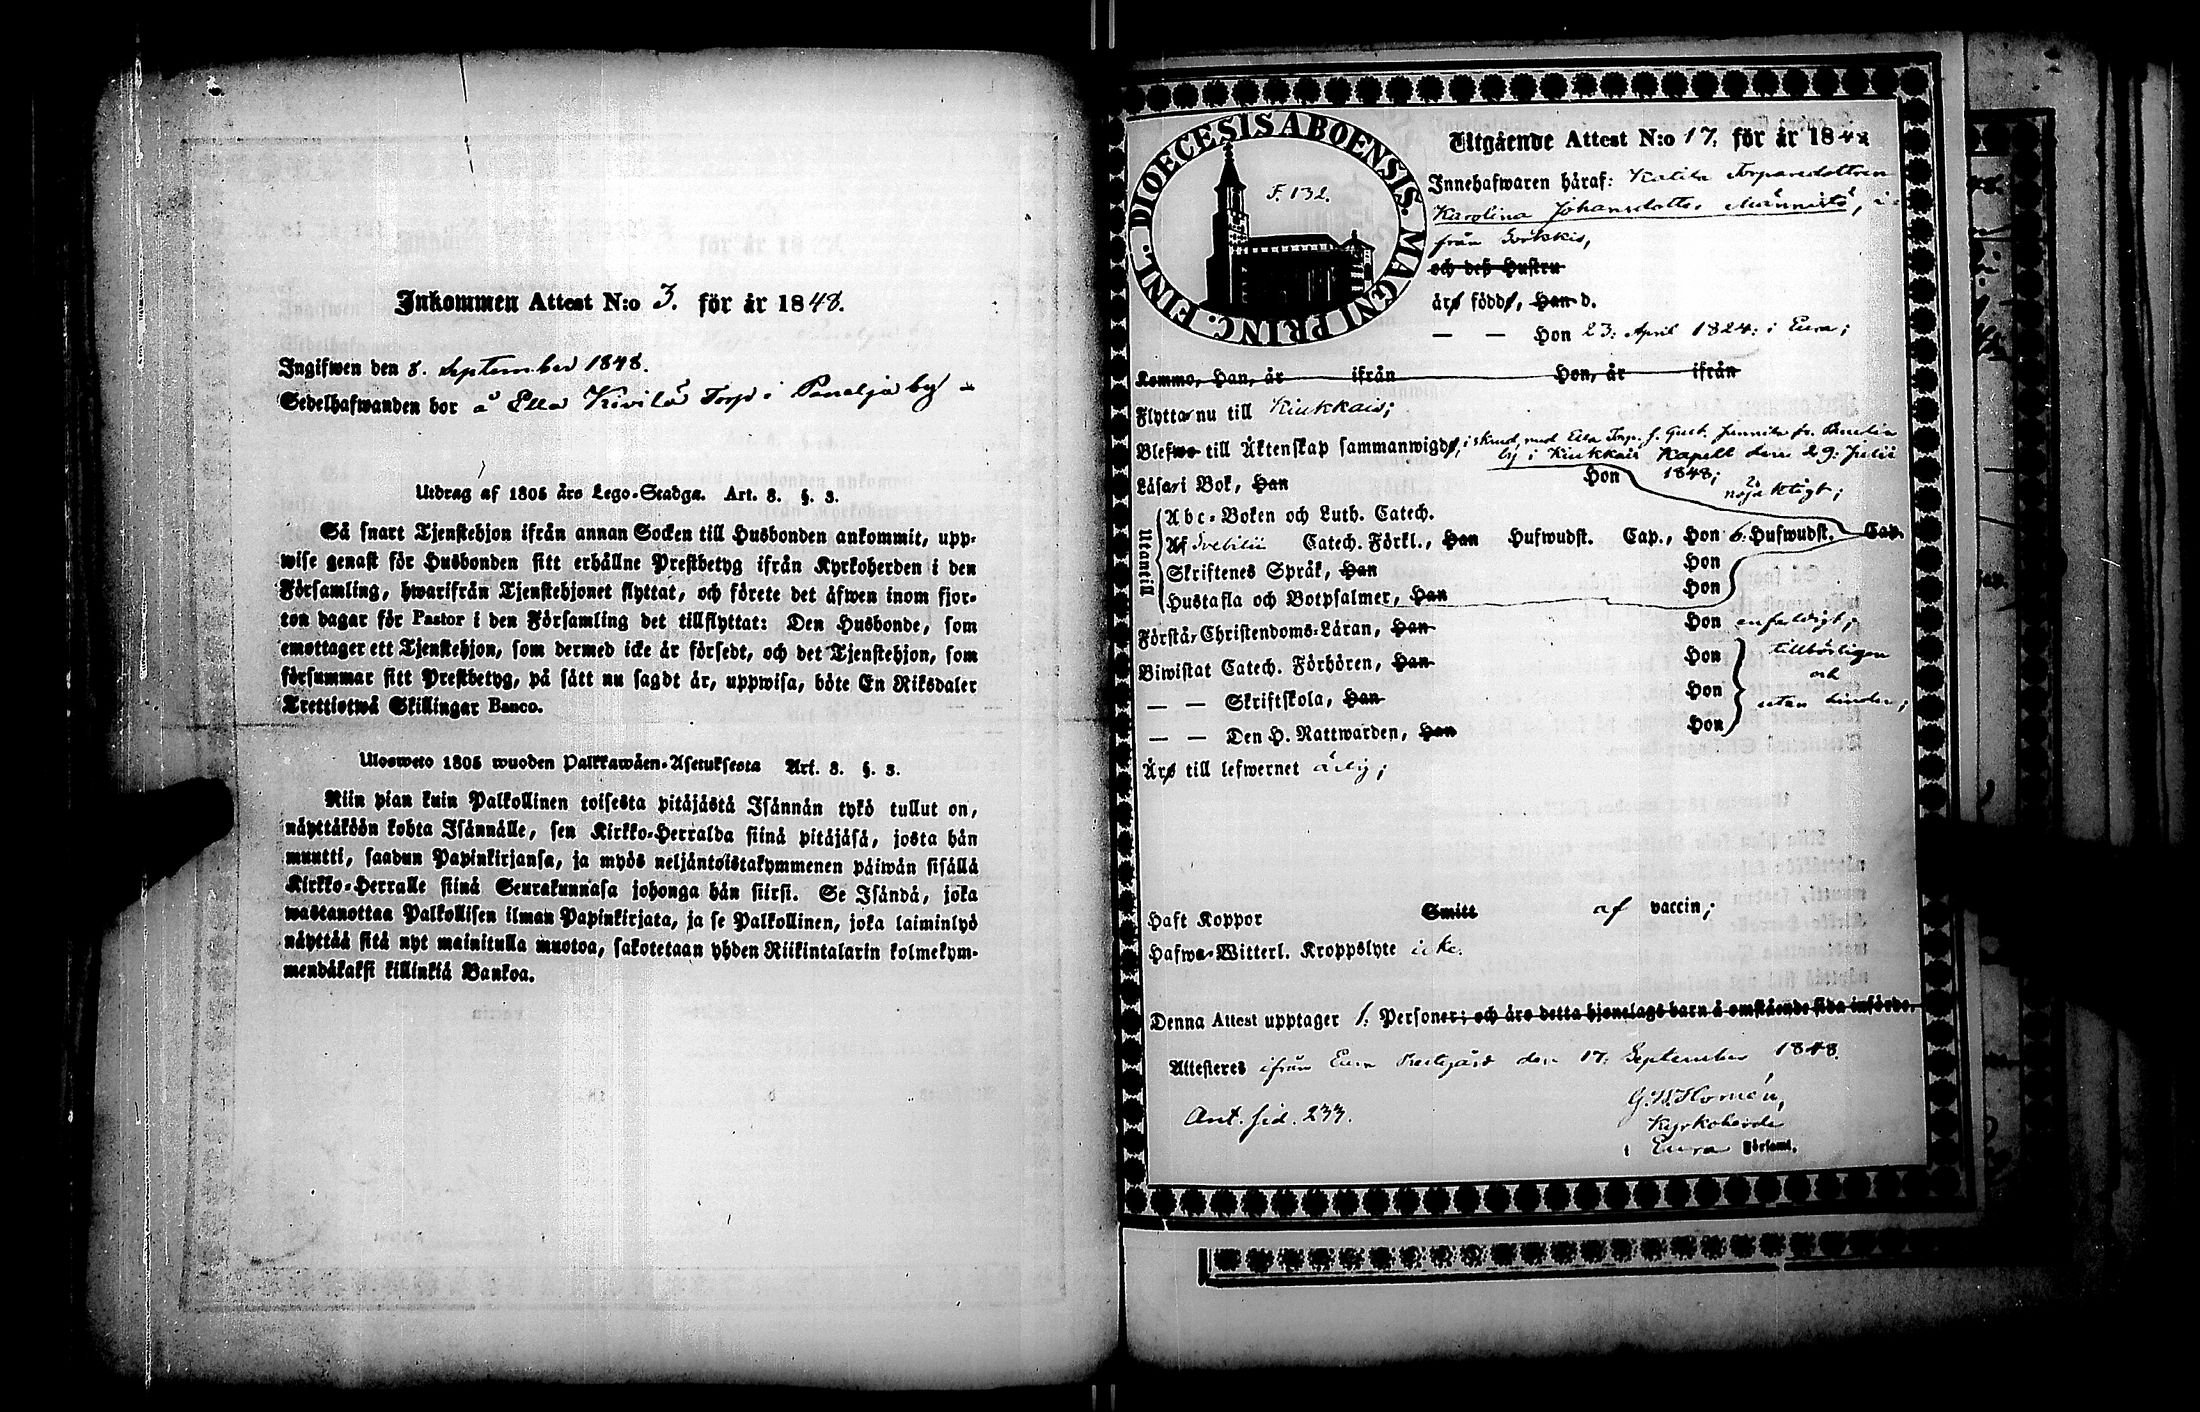 Inkommen Attest N:o 3. för år 1848.
Ingifwen den 8. September 1848.
Sedelhafwanden bor å Ella Kivilä Torp i Paneljaby
Utdrag af 1805 års Lego-Stadga. Art. 8. §. 3.
Så snart Tjenstehjon ifrån annan Socken till Husbonden ankommit, upp-
wise genast för Husbonden sitt erhållne Prestbetyg ifrån Kyrkoherden i den
Församling, hwarifrån Tjenstehjonet flyttat, och förete det äfwen inom fjor-
ton dagar för Pastor i den Församling det tillflyttat: Den Husbonde, som
emottager ett Tjenstehjon, som dermed icke är försedt, och det Tjenstehjon, som
försummar sitt Prestbetyg, på sätt nu sagdt är, uppwisa, böte En Riksdaler
Trettiotwå Skillingar Banco.
Ulosweto 1805 wuoden Palkkawäen-Asetuksesta Art. 8. §. 3.
Niin pian kuin Palkollinen toisesta pitäjästä Isännän tykö tullut on,
näyttäköön kohta Isännälle, sen Kirkko-Herralda siinä pitäjäsä, josta hän
muutti, saadun Papinkirjansa, ja myös neljäntoistakymmenen päiwän sisällä
Kirkko-Herralle siinä Seurakunnasa johonga hän siirsi. Se Isändä, joka
wastanottaa Palkollisen ilman Papinkirjata, ja se Palkollinen, joka laiminlyö
näyttää sitä nyt mainitulla muotoa, sakotetaan yhden Riikintalarin kolmekym-
mendäkaksi killinkiä Bankoa.
DIOECESIS ABOENSIS. MAGNI PRINC. FINL.
F. 132.
Utgående Attest N:o 17. för år 1848
Innehafwaren häraf: Torparedottren
Karolina Johansdotter Männistö,
från Sorkkis,
och deß Hustru
äro födde, Han d.
— — Hon 23: April 1824: i Eura;
Kommo, Han, år ifrån Hon, år ifrån
Flytta nu till Kiukkais;
Blefwo till Äktenskap sammanwigde, med Ella Torp. s. Gust.
by i Kiukkais Kapell den 29: Julii
1848;
Läsa i Bok, Han Hon nöjaktigt;
Utantill
Abc-Boken och Luth. Catech.
Af Svebilii Catech. Förkl., Han Hufwudst. Cap., Hon 6. Hufwudst. Cap.
Skriftenes Språk, Han Hon
Hustafla och Botpsalmer, Han Hon
Förstår Christendoms-Läran, Han Hon enfaldigt;
Biwistat Catech. Förhören, Han Hon tillbörligen
— — Skriftskola, Han Hon och
— — Den H. Nattwarden, Han Hon utan hinder;
Äro till lefwernet ärlig;
Haft Koppor Smitt af vaccin;
Hafwa Witterl. Kroppslyte icke.
Denna Attest upptager 1. Personer; och äro detta hjonelags barn å omstående sida införde.
Attesteres ifrån Eura Prestgård den 17: September 1848.
Ant. sid. 233.
G. W. Homén,
Kyrkoherde
i Eura Församl.